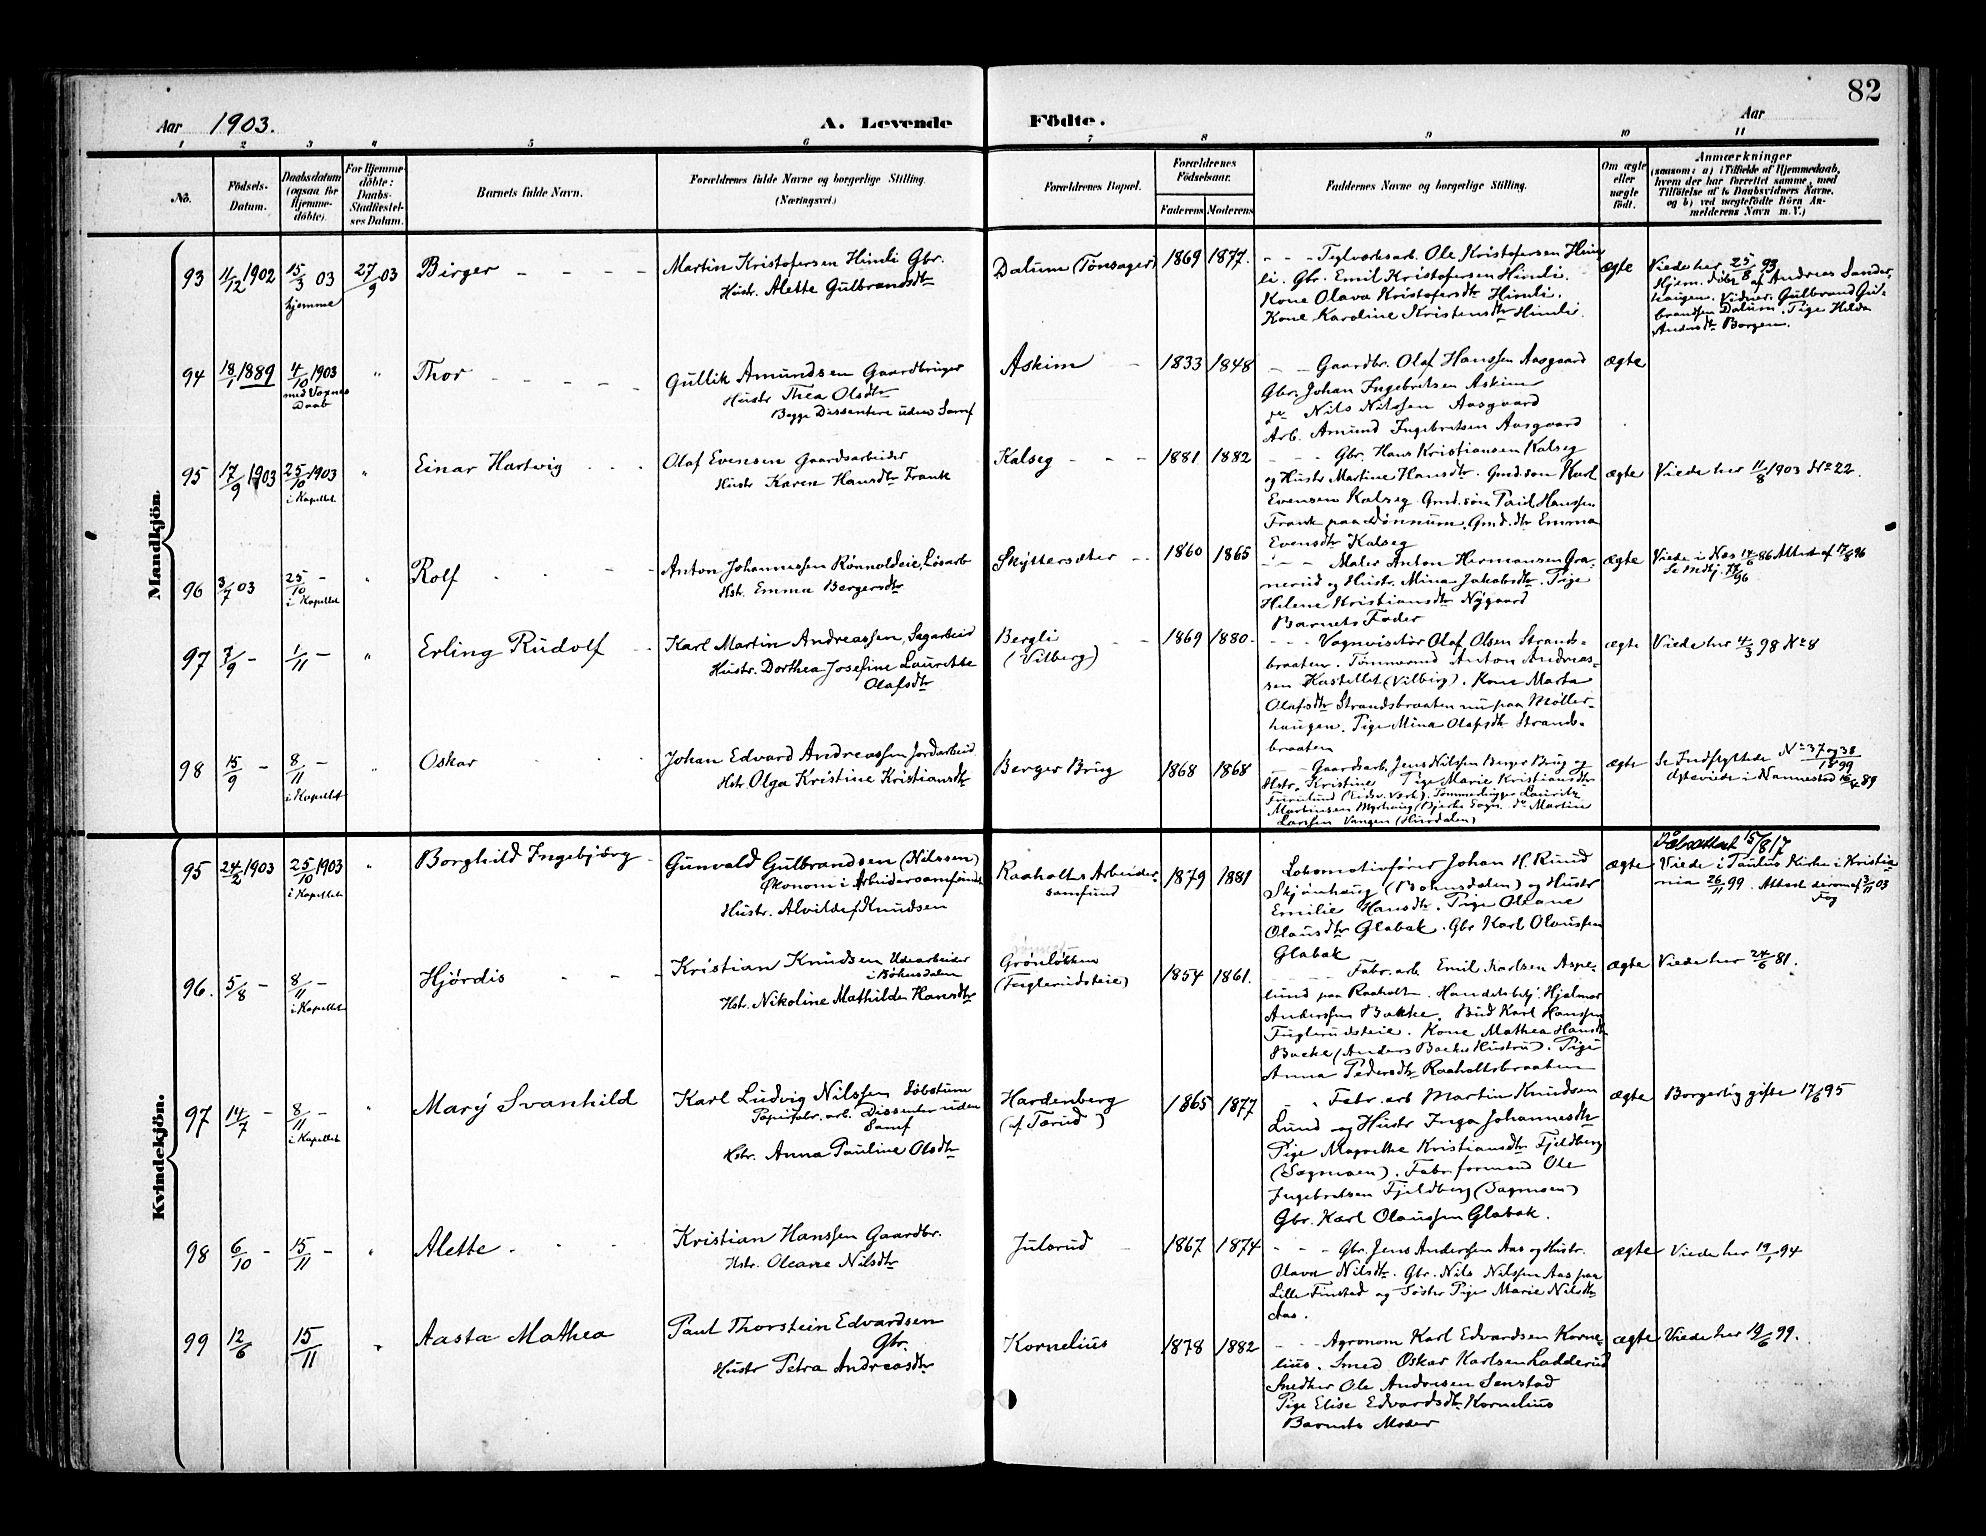 82
Aar 1903. A. Levende Födte. Aar
1 2 3 4 5 6 7 8 9 10 11
No.
Födsels-
Datum.
Daabsdatum
(ogsaa for
Hjemme-
döbte)
For Hjemme-
döbte:
Daabs-
Stadfæstel-
ses Datum.
Barnets fulde Navn.
Forældrenes fulde Navne og borgerlige Stilling.
(Næringsvei.)
Forældrenes Bopæl.
Forældrenes
Födselsaar.
Faderens Moderens
Faddernes Navne og borgerlige Stilling.
Om ægte
eller
uægte
födt.
Anmærkninger
(saasom: a) i Tilfælde af Hjemmedaab,
hvem der har forrettet samme, med
Tilföielse af to Daabsvidners Navne,
og b) ved uægtefödte Börn An-
melderens Navn m. V.)
Mandkjön.
93 11/12 1902 15/3 03 hjemme 27/9 03 Birger
Martin Kristofersen Himli Gbr.
Hustr. Alette Gulbrandsdtr
Dalum (Tönsager) 1869 1877.
Teglværksarb. Ole Kristofersen Him
li. Gbr. Emil Kristofersen Himli.
Kone Olava Kristofersdtr Himli.
Kone Karoline Kristensdtr Himli.
ægte
Viede her 25/8 93
Hjem. döbt af Andreas Sander
haugen. Vidner: Gulbrand Gul-
brandsen Dalum. Pige Hilda
Andersdtr Borgen.
94 18/1 1889 4/10 1903 med Voxnes Daab " Thor
Gullik Amundsen Gaardbruger
Hustr Thea Olsdtr
Begge Dissentere uden Samf
Askim 1833 1848
Gaardbr. Olaf Hanssen Aasgaard
Gbr. Johan Ingebretsen Askim
do Nils Nilssen Aasgaard
Arb. Amund Ingebretsen Aasgaard
ægte
95 17/9 1903 25/10 1903 i Kapellet " Einar Hartvig
Olaf Evensen Gaardsarbeider
Hustr Karen Hansdtr Frank
Kalseg 1881 1882
Gbr. Hans Kristiansen Kalseg
og Hustr Martine Hansdtr. Gmd.søn Karl
Evensen Kalseg Gmd.søn Paul Hanssen
Frank paa Dönnum. Gmd.dtr Emma
Evensdtr Kalseg
ægte
Viede her 11/8 1903 No 22.
96 3/7 03 25/10 - i Kapellet " Rolf
Anton Johannessen Rönnoldeie, Lösarb
Hstr. Emma Bergersdtr
Skyttersæter 1860 1865
Maler Anton Hermansen Gra-
nerud og Hustr. Mina Jakobsdtr. Pige
Helene Kristiansdtr Nygaard
Barnets Fader
ægte
Viede i Næs 14/6 86 Attest af 17/8 96
97 3/9 - 1/11 - " Erling Rudolf
Karl Martin Andreassen, Sagarbeid
Hustr. Dorthea Josefine Laurette
Olafsdtr
Bergli
(Vilberg)
1869 1880.
Vognvisitör Olaf Olsen Strands-
braaten. Tömmermd Anton Andreas-
sen Kastellet (Vilberg). Kone Marta
Olafsdtr Strandsbraaten nu paa Möller-
haugen. Pige Mina Olafsdtr Strands-
braaten
ægte
Viede her 4/3 98 No 8
98 15/9 - 8/11 - i Kapellet Oskar
Johan Edvard Andreassen Jordarbeid
Hstr Olga Kristine Kristiansdtr
Berger Brug 1868 1868
Gaardsarb. Jens Nilssen Berger Brug og
Hstr. Kristine. Pige Marie Kristiansdtr
Furulund (Eidsv. Værk). Tömmerhugger Lauritz
Martinsen Myrhaug (Bjerke Sogn. do Martin
Larssen Vangen (Hurdalen)
ægte
Se Indflyttede No 37 og 38 1899
Ægteviede i Nannestad 16/4 89
Kvindekjön.
95 24/2 1903 25/10 1903 i Kapellet " Borghild Ingebjørg
Gunvald Gulbrandsen (Nilssen)
Økonom i Arbeidersamfundet
Hustr. Alvilde f Knudsen
Raaholts Arbeider-
samfund
1879 1881
Lokomotivförer Johan H. Ruud
Skjønhaug (Bøhnsdalen) og Hustr
Emilie Hansdtr. Pige Oleane
Olausdtr Glabak. Gbr Karl Olaussen
Glabak
ægte
Dåbsattest 15/8 17
Viede i Paulus Kirke i Kristia
nia 26/11 99. Attest derom af 3/11 03
Fog
96. 5/8 - 8/11 - i Kapellet Hjördis
Kristian Knudsen Udearbeider
i Böhnsdalen
Hstr. Nikoline Mathilde Hansdtr
Grönlökken
(Fuglerudseie)
1854 1861.
Fabr. arb. Emil Karlsen Aspe-
lund paa Raaholt. Handelsbetj. Hjalmar
Anderssen Bakke. Bud Karl Hanssen
Fuglerudseie. Kone Mathea Hansdtr
Bakke (Anders Bakkes Hustru). Pige
Anna Pedersdtr Raaholtsbraaten
ægte
Viede her 24/6 81.
97 14/7 - 8/11 - i Kapellet " Mary Svanhild
Karl Ludvig Nilssen Löbstum
Papirfabr. arb. Dissenter uden
Samf
Hstr. Anna Pauline Olsdtr
Hardenberg
(af Tærud)
1865 1877
Fabr. arb Martin Knudsen
Lund og Hustr Inga Johannesdtr
Pige Magrethe Kristiansdtr Fjeldberg
(Sagmoen). Fabr. formand Ole
Ingebretsen Fjeldberg (Sagmoen)
Gbr. Karl Olaussen Glabak.
ægte
Borgerlig gifte 17/8 95
98 6/10 - 15/11 - " Alette
Kristian Hanssen Gaardbr.
Hstr. Oleane Nilsdtr
Julsrud 1867 1874
Gbr. Jens Anderssen Aas og Hustr.
Olava Nilsdtr. Gbr. Nils Nilssen Aas paa
Lille Finstad og Söster Pige Marie Nilsdtr
Aas.
ægte
Viede her 19/1 94
99 12/6 15/11 " Aasta Mathea
Paul Thorstein Edvardsen
Gbr.
Hustr Petra Andreasdtr
Kornelius 1878 1882
Agronom Karl Edvardsen Korne-
lius. Smed Oskar Karlsen Ladderud
Snedker Ole Andersen Senstad
Pige Elise Edvardsdtr Kornelius
Barnets Moder
ægte
Viede her 19/6 99.